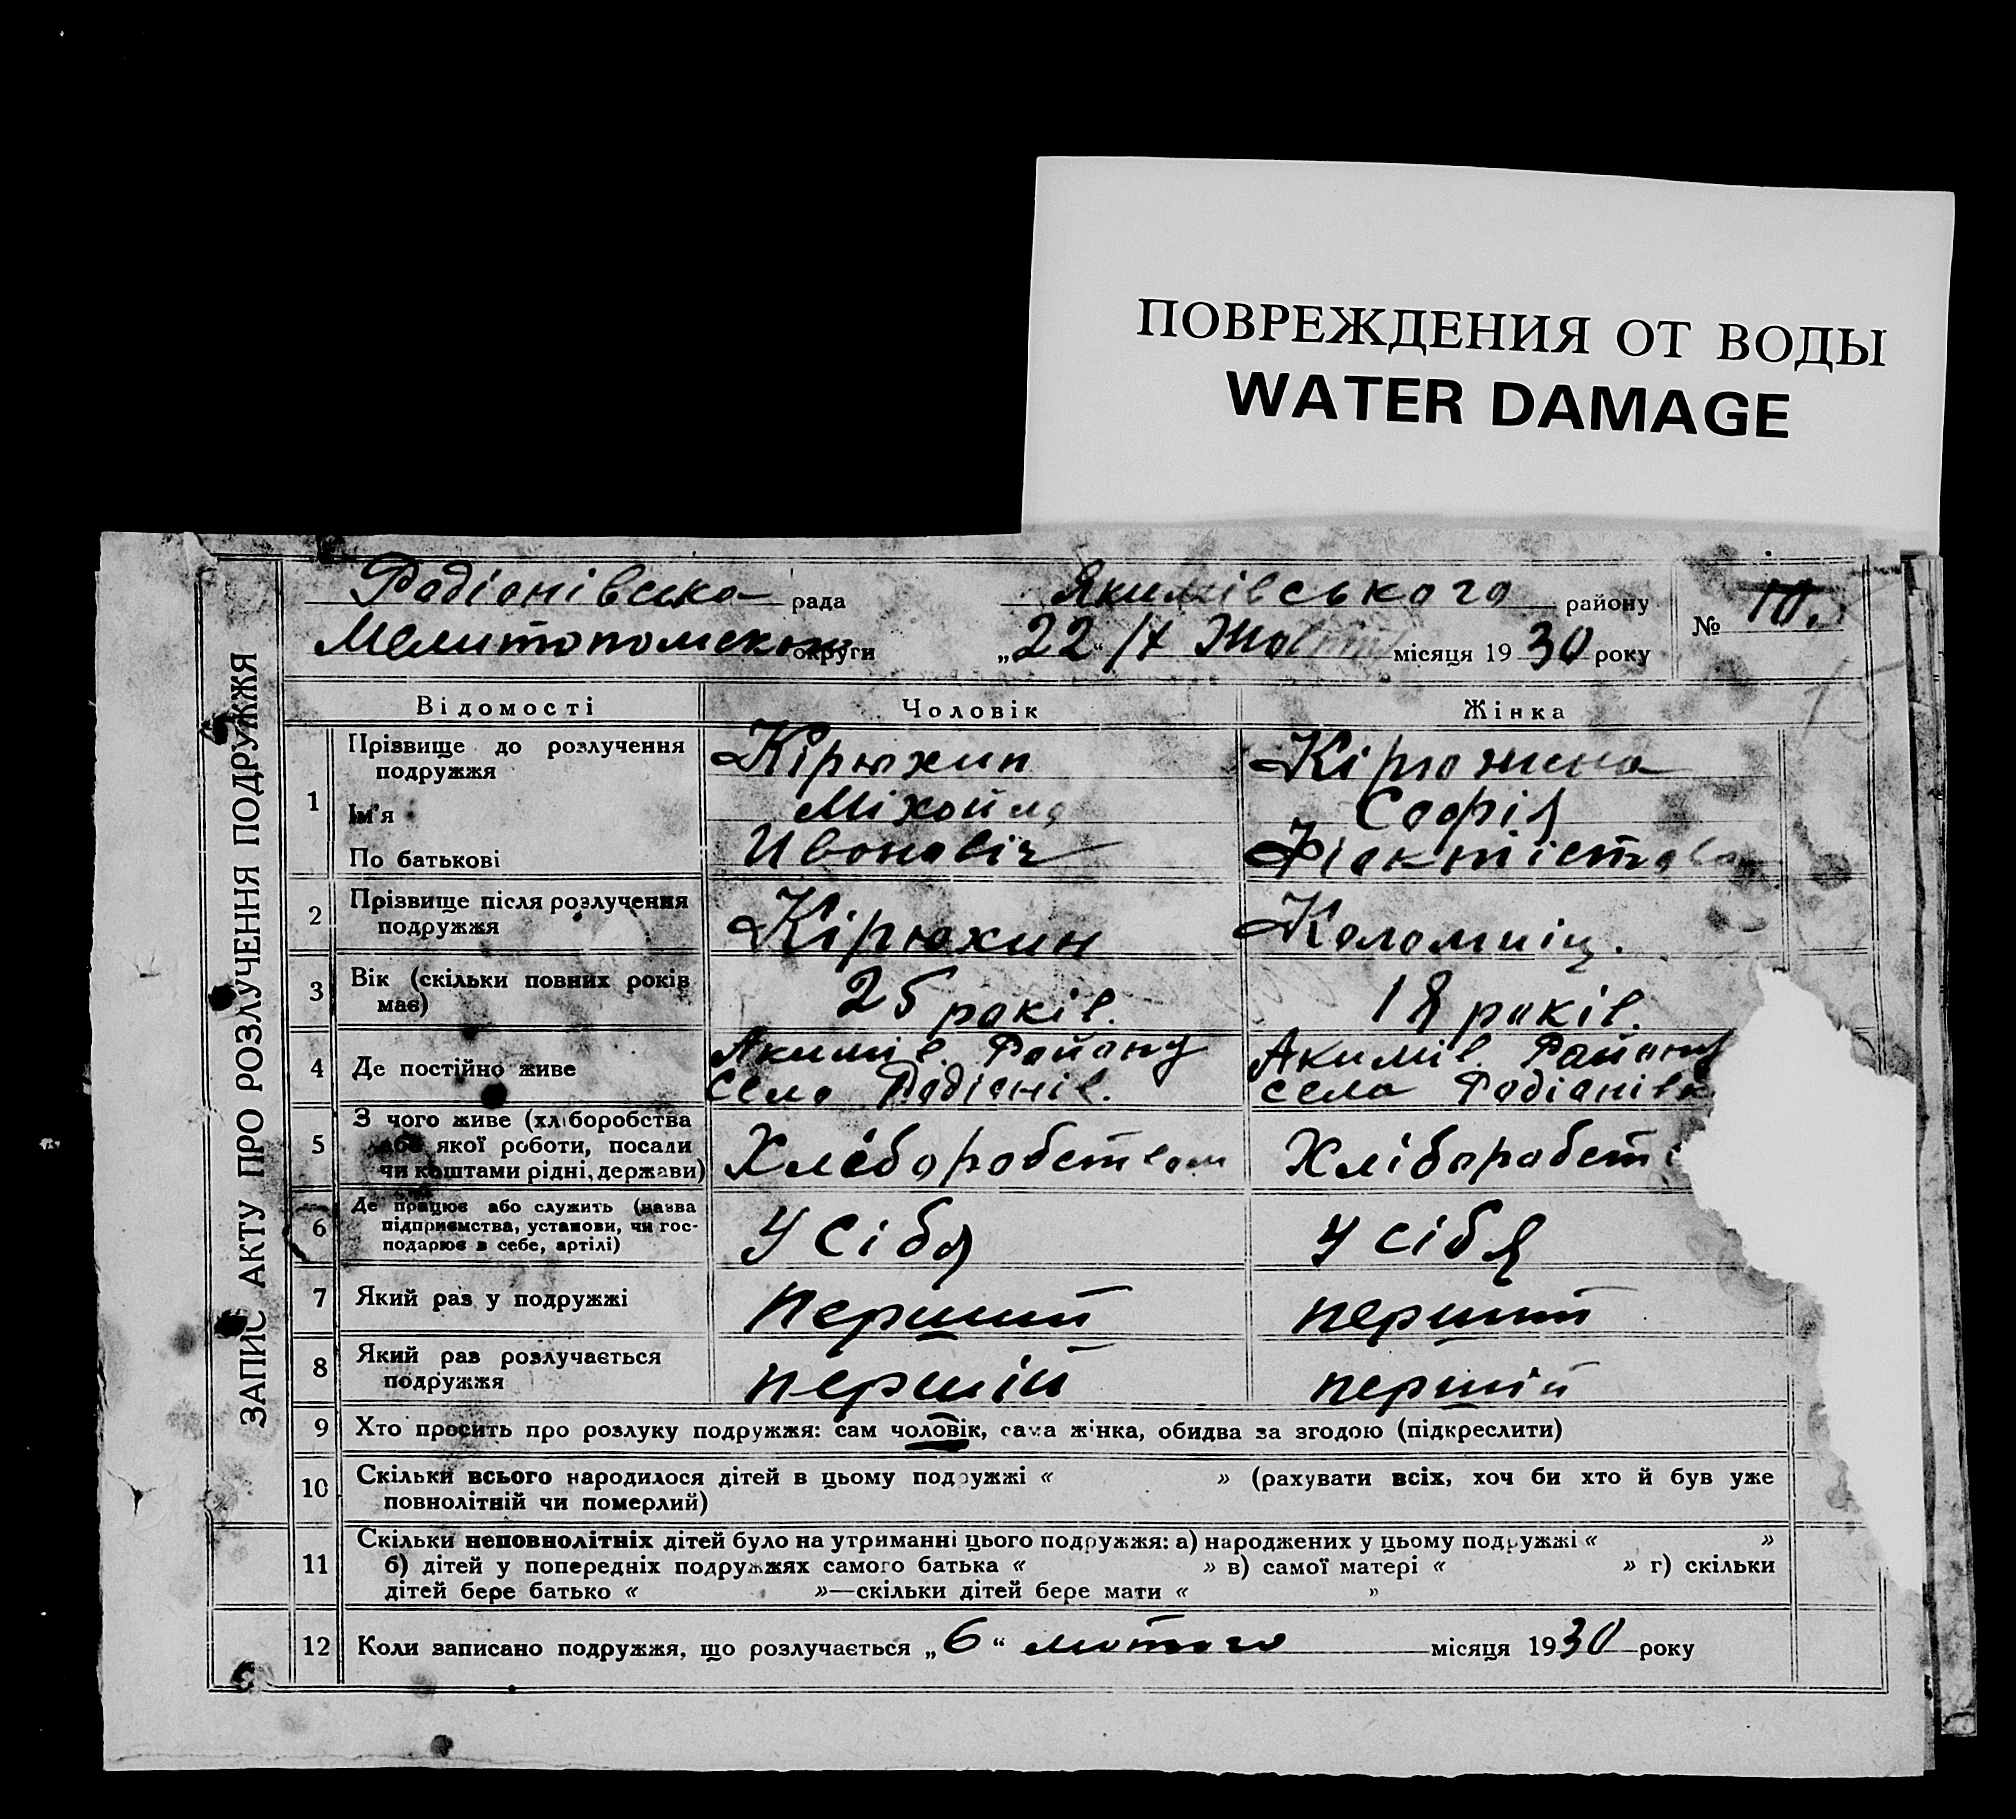 ПОВРЕЖДЕНИЯ ОТ ВОДЫ
WATER DAMAGE
ЗАПИС АКТУ ПРО РОЗЛУЧЕННЯ ПОДРУЖЖЯ
Родіонівська рада Якимівського району
№ 10.
Мелитопольскои округи „22“ /X Жовт місяця 1930 року
Відомості Чоловік Жінка
1 Прізвище до розлучення подружжя Кірюхин Кірюхина
Ім'я Міхойло Софія
По батькові Ивановіч Фіоктістова
2 Прізвище після розлучення подружжя Кірюхин Коломиіц.
3 Вік (скільки повних років має) 25 років. 18 років.
4 Де постійно живе Якимів. Району Акимів. Району
село Родіонів. села Родіонівк
5 З чого живе (хліборобства або якої роботи, посади чи коштами рідні, держави) Хлеборобством Хліборобст
6 Де працює або служить (назва підприємства, установи, чи господарює в себе, артілі) У сібя У сібя
7 Який раз у подружжі первший перший
8 Який раз розлучається подружжя першій першій
9 Хто просить про розлуку подружжя: сам чоловік, сама жінка, обидва за згодою (підкреслити)
10 Скільки всього народилося дітей в цьому подружжі « » (рахувати всіх, хоч би хто й був уже
повнолітній чи померлий)
11 Скільки неповнолітніх дітей було на утриманні цього подружжя: а) народжених у цьому подружжі « »
б) дітей у попередніх подружжях самого батька « » в) самої матері « » г) скільки
дітей бере батько « »—скільки дітей бере мати « »
12 Коли записано подружжя, що розлучається „6“ лютого місяця 1930 року